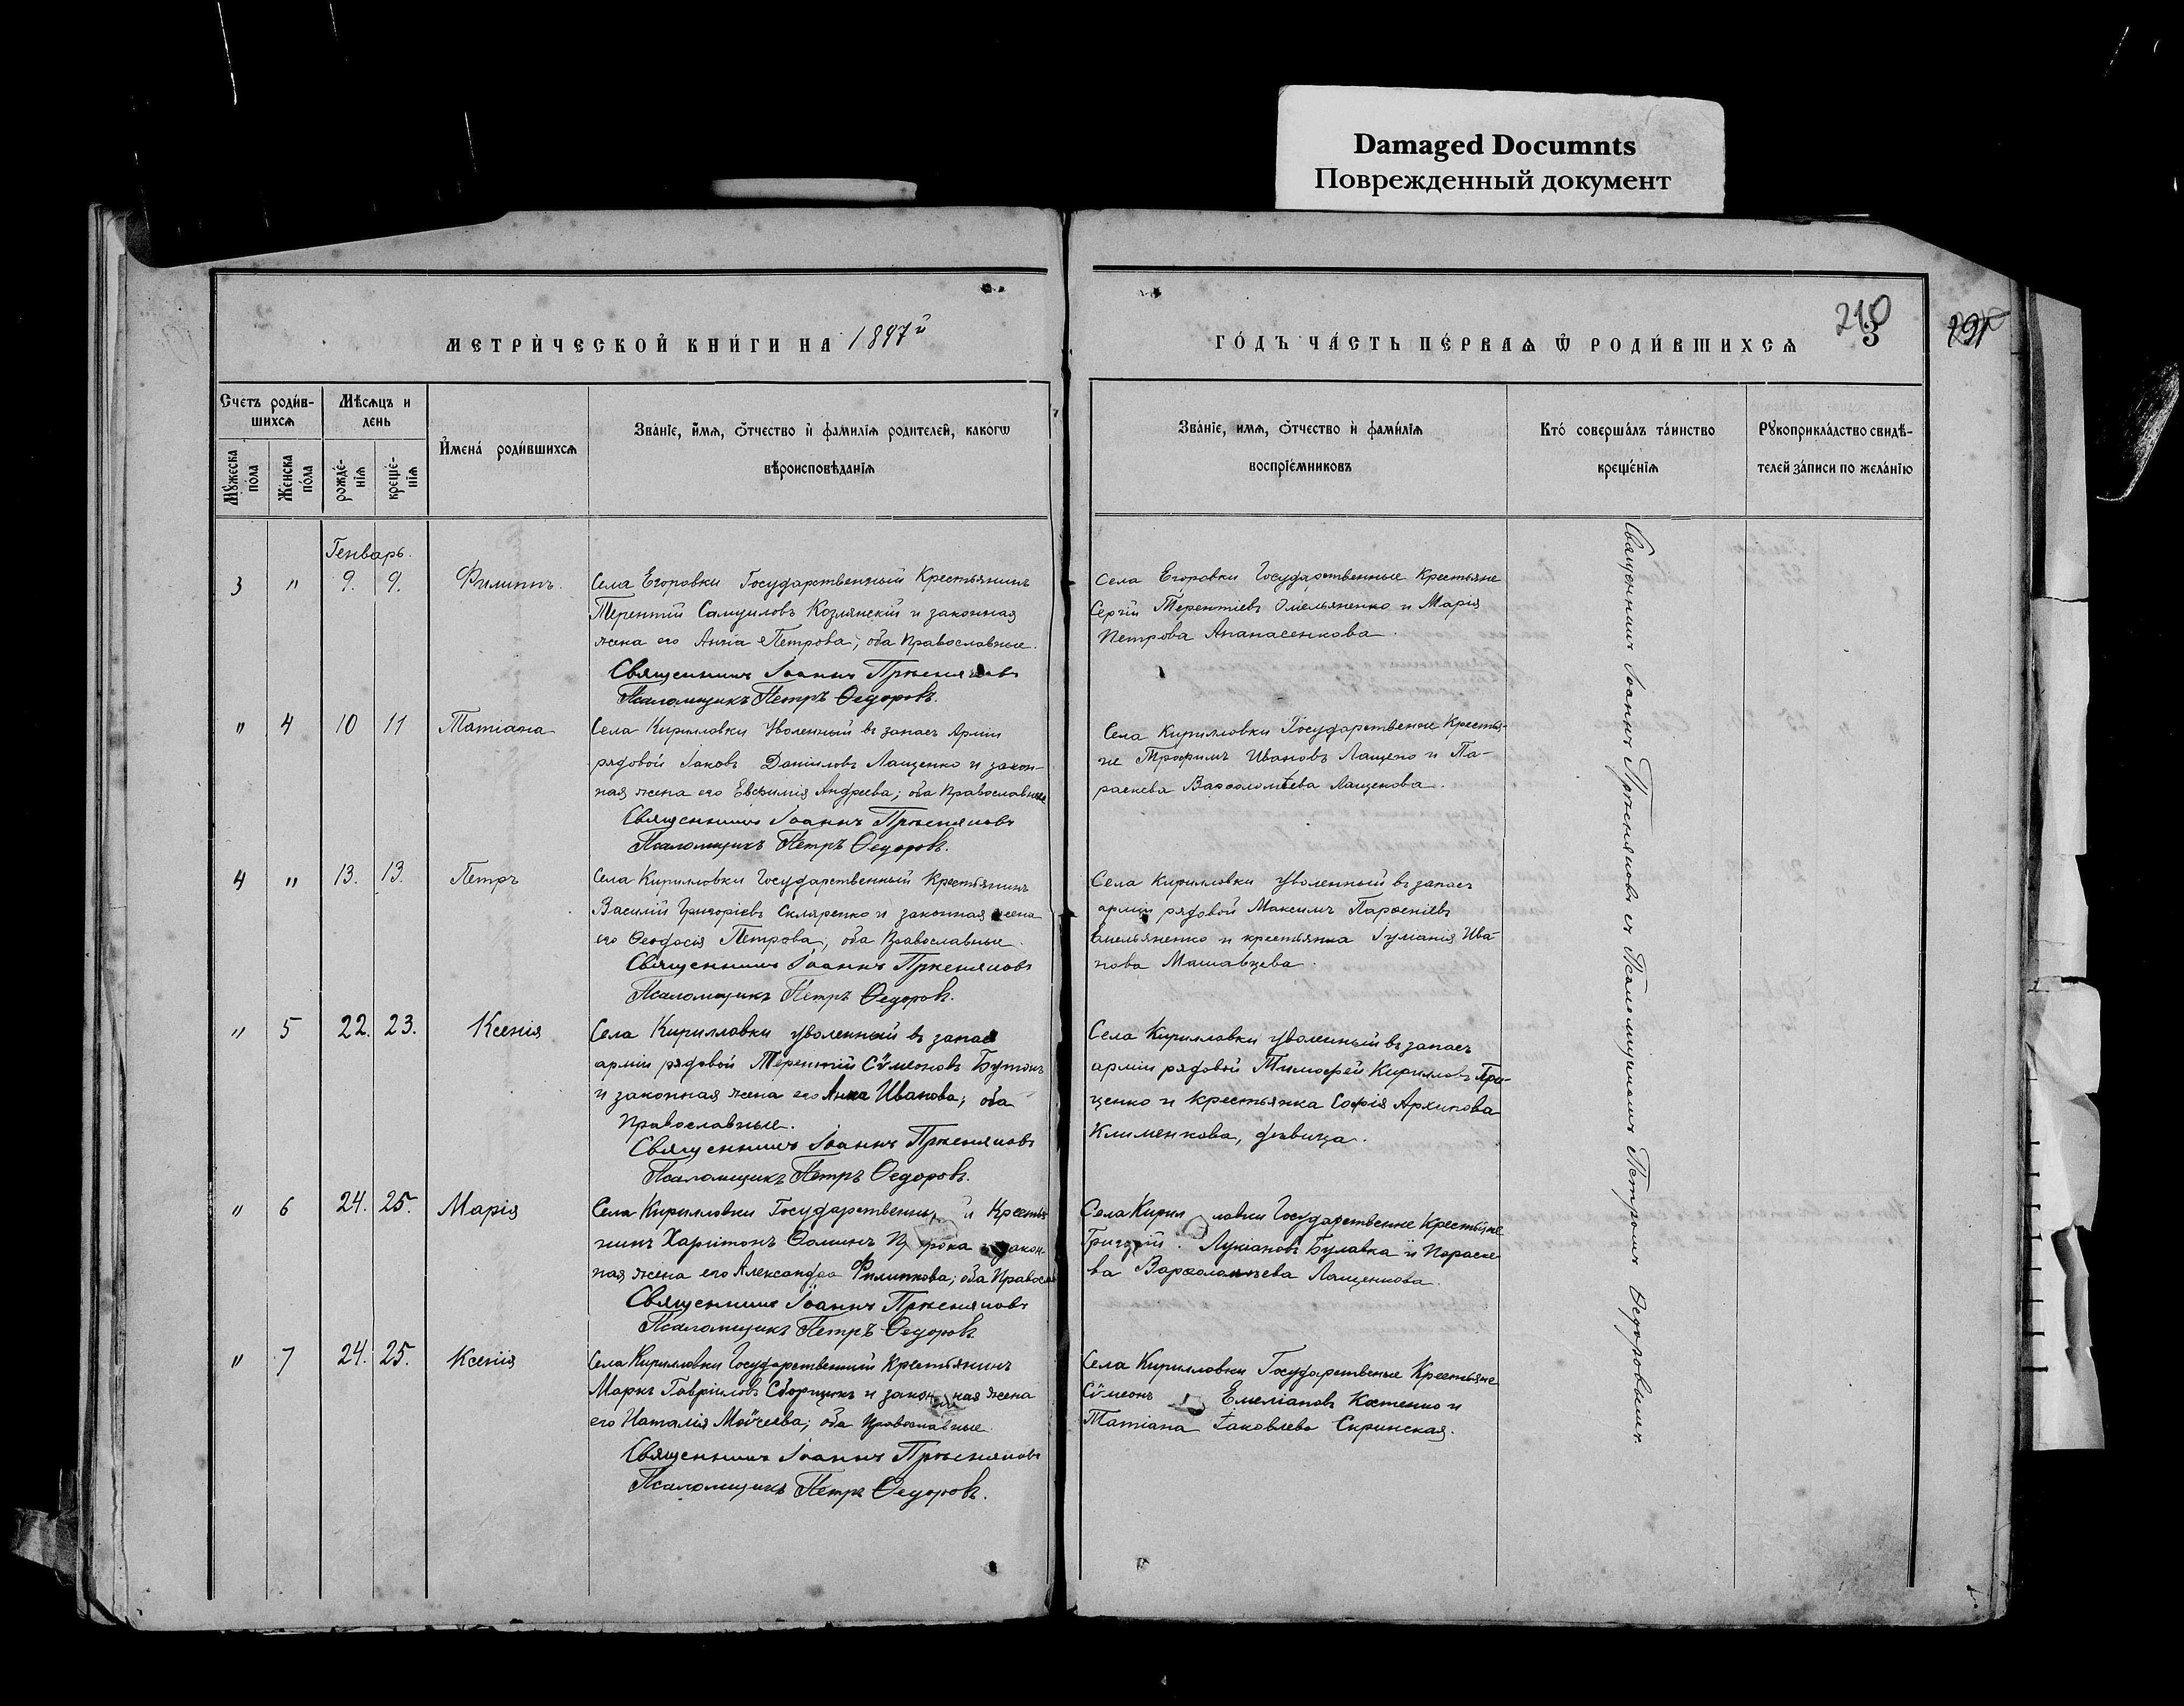 Damaged Documnts
Поврежденный документ
МЕТРИ́ЧЕСКОЙ КНИ́ГИ НА 1897й
ГО́ДЪ ЧА́СТЬ ПЕ́РВАѦ Ѿ РОДИ́ВШИХСѦ
210
3
Счетъ роди́в-
шихсѧ
Мѣсѧцъ и
день
И҆мена̀ роди́вшихсѧ
Зва́нїе, и҆́мѧ, ѻ҆́тчество и҆ фами́лїѧ родителей, како́гѡ
вѣроисповѣ́данїѧ
Мꙋ́жеска
по́ла
Же́нска
по́ла
рожде́-
нїѧ
креще́-
нїѧ
Зва́нїе, имѧ, ѻ҆́тчество и҆ фами́лїѧ
воспрїе́мниковъ
Кто́ соверша́лъ та́инство
креще́нїѧ
Рꙋкоприкла́дство свидѣ́-
телей за́писи по жела́нїю
Генварь.
3 " 9. 9. Филиппъ.
Села Егоровки Государственный Крестьянинъ
Терентій Самуиловъ Козлянскій и законная
жена его Анна Петрова; оба Православные.
Священникъ Іоаннъ
Псаломщикъ Петръ Ѳедоровъ.
Села Егоровки Государственные Крестьяне
Сергій Терентіевъ Омельяненко и Марія
Петрова Апанасенкова.
" 4 10 11 Татіана
Села Кирилловки Уволенный въ запасъ Арміи
рядовой Іаковъ Даніиловъ Лащенко и закон-
ная жена его Евфимія Андреева; оба Православные
Священникъ Іоаннъ
Псаломщикъ Петръ Ѳедоровъ.
Села Кирилловки Государственые Крестья-
не Трофимъ Ивановъ Лащенко и Па-
раскева Варѳоломѣева Лащенкова.
4 " 13. 13. Петръ
Села Кирилловки Государственный Крестьянинъ
Василій Григоріевъ Скляренко и законная жена
его Ѳеодосія Петрова; оба Православные.
Священникъ Іоаннъ
Псаломщикъ Петръ Ѳедоровъ.
Села Кирилловки уволенный въ запасъ
арміи рядовой Максимъ Парѳеніевъ
Емельяненко и крестьянка Іуліанія Ива-
нова
" 5 22. 23. Ксенія
Села Кирилловки уволенный въ запас
арміи рядовой Терентій Сѵмеоновъ
и законная жена его Анна Иванова; оба
Православные.
Священникъ Іоаннъ
Псаломщикъ Петръ Ѳедоровъ.
Села Кирилловки уволенный въ запасъ
арміи рядовой Тимофей Кирилловъ Гри-
ценко и крестьянка Софія Архипова
Клименкова, дѣвица.
" 6 24. 25. Марія
Села Кирилловки Государственны й Крестья
нинъ Харитонъ Ѳоминъ и закон-
ная жена его Александра Филиппова; оба Правосл
Священникъ Іоаннъ
Псаломщикъ Петръ Ѳедоровъ.
Села Кирил ловки Государственые Крестьяне
Григорій Лукіановъ Булавка и Параске
ва Варѳоломѣева Лащенкова.
" 7 24. 25. Ксенія
Села Кирилловки Государственный Крестьянинъ
Маркъ Гавріиловъ Сборщикъ и закон ная жена
его Наталія Мойсеева; оба Православные
Священникъ Іоаннъ
Псаломщикъ Петръ Ѳедоровъ.
Села Кирилловки Государственые Крестьяне
Сѵмеонъ Емеліановъ Костенко и
Татіана Іаковлева Скринская.
Священникъ Іоаннъ съ Псаломщикомъ Петромъ Ѳедоровымъ.